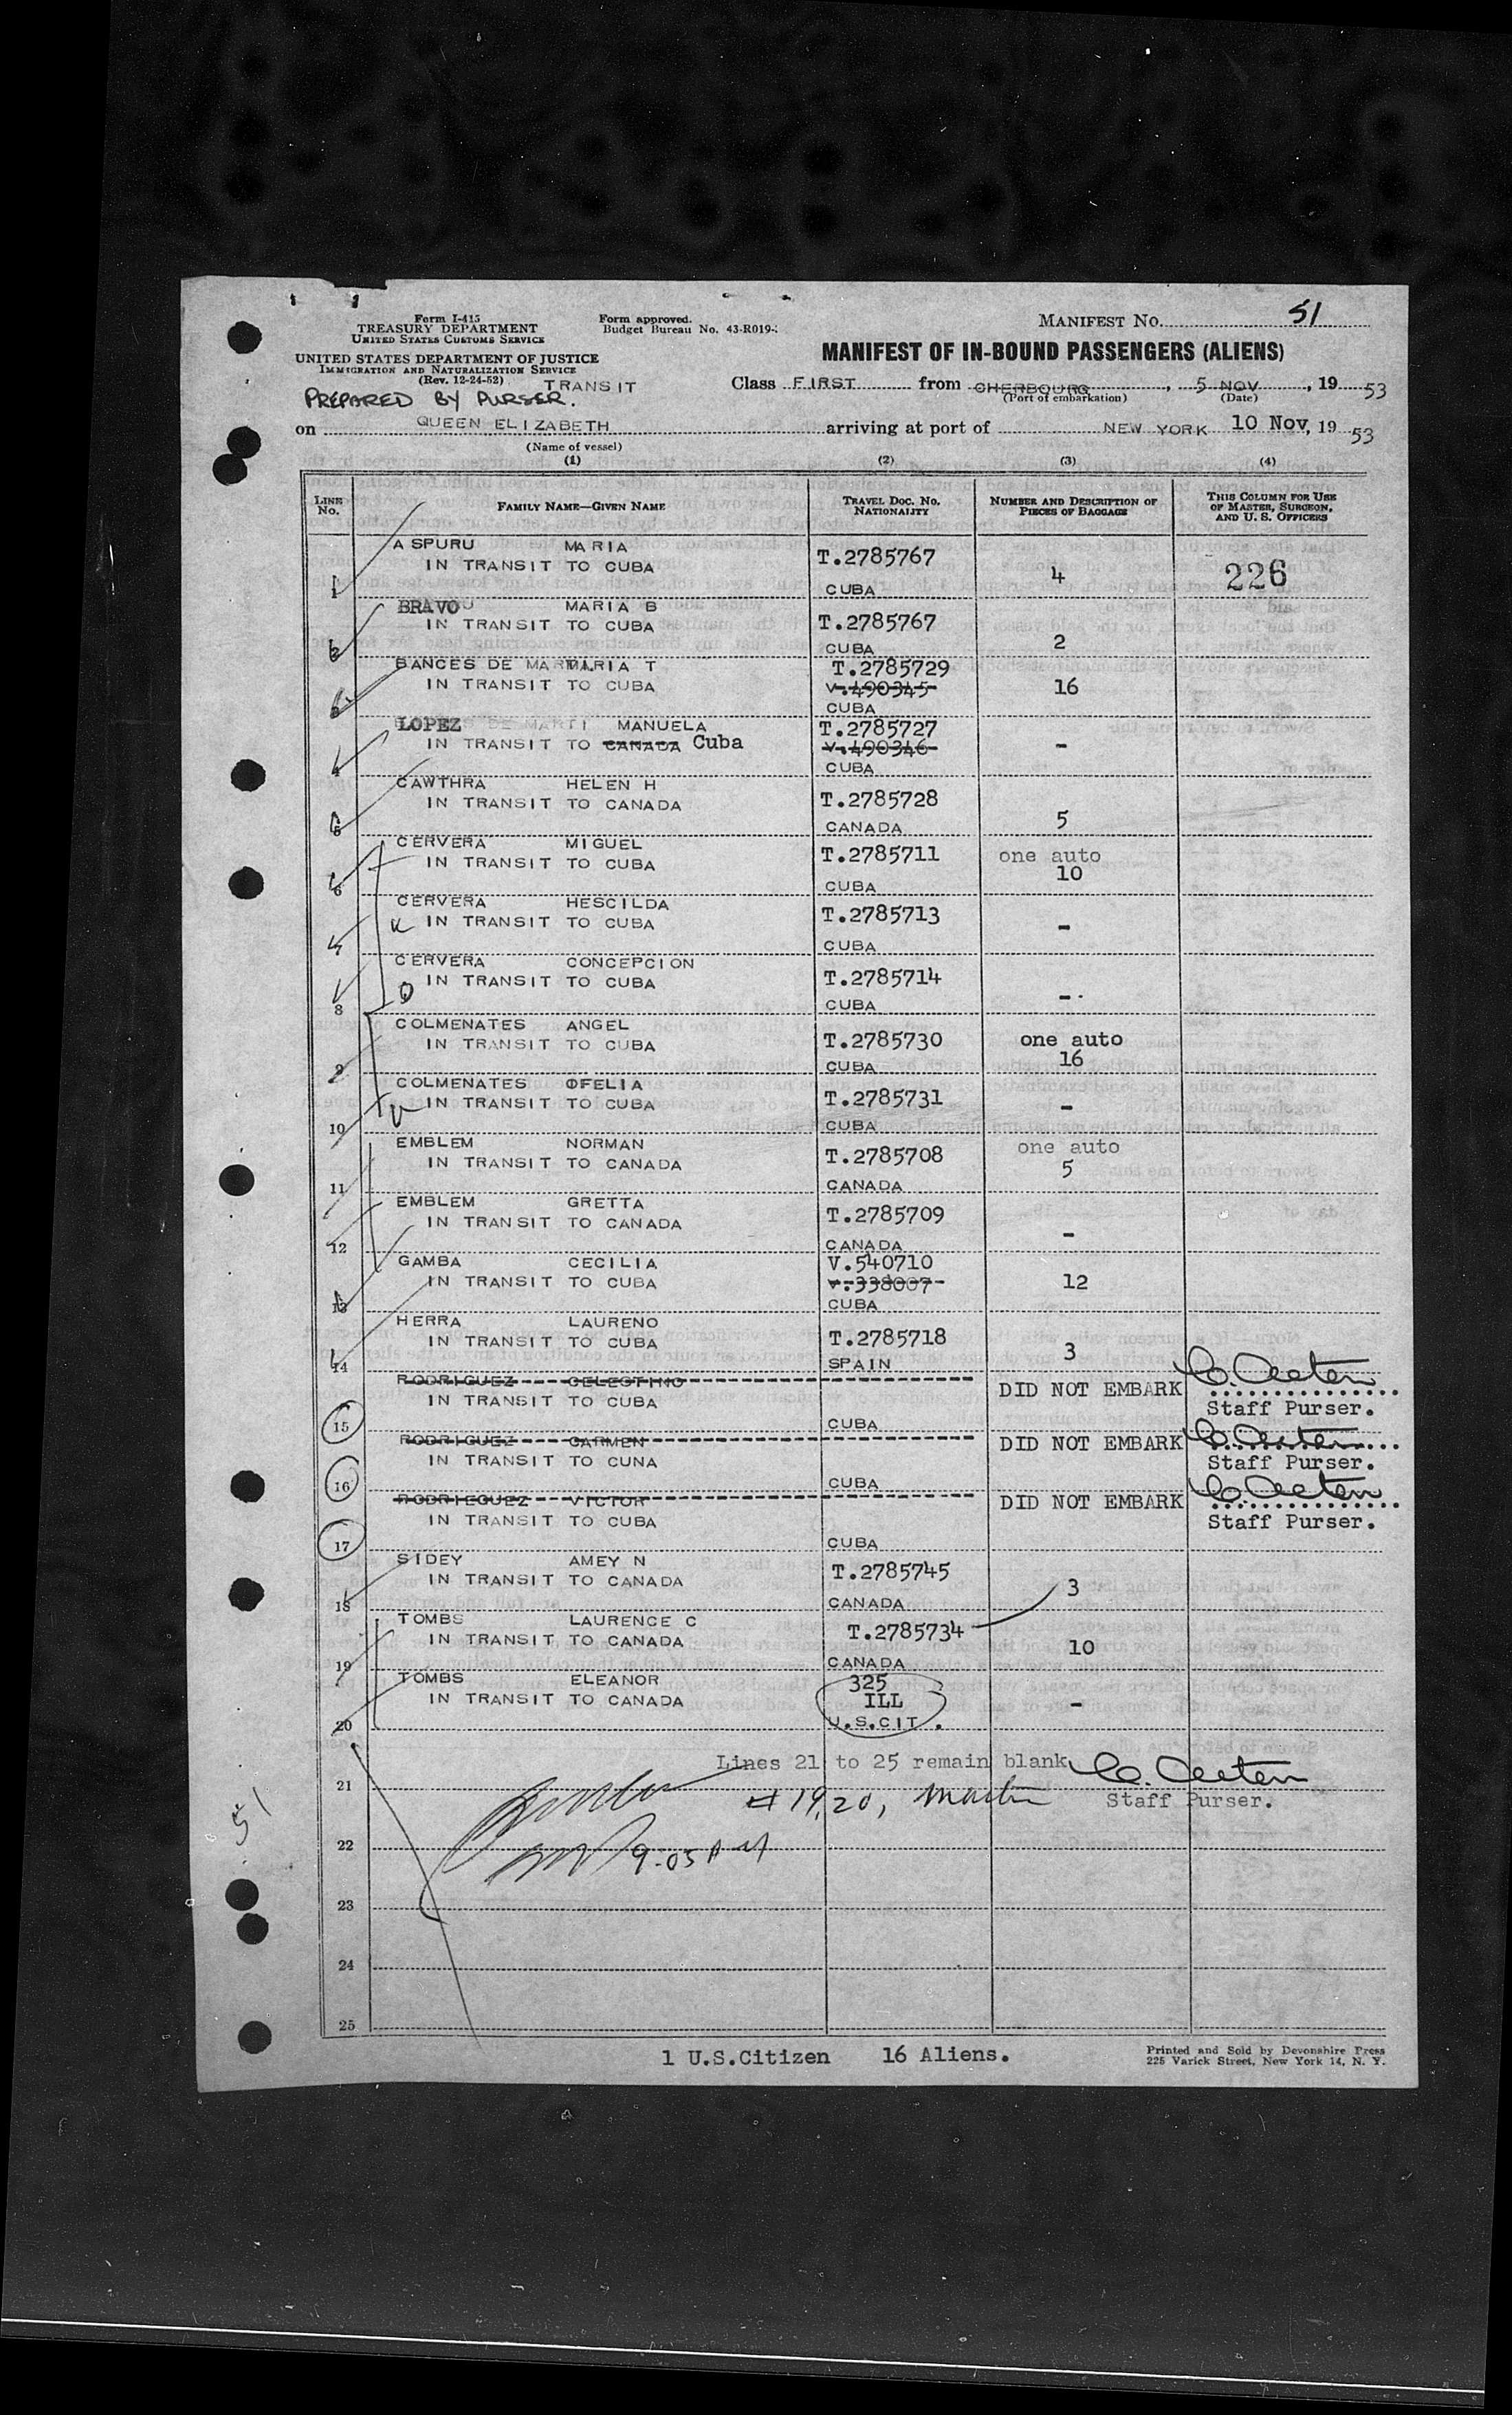 Form I-415
TREASURY DEPARTMENT
UNITED STATES CUSTOMS SERVICE
UNITED STATES DEPARTMENT OF JUSTICE
IMMIGRATION AND NATURALIZATION SERVICE
(Rev. 12-24-52)
TRANSIT
PREPARED BY PURSER.
Form approved.
Budget Bureau No. 43-R019-
MANIFEST NO. 51
MANIFEST OF IN-BOUND PASSENGERS (ALIENS)
Class FIRST from CHERBOURG, 5 NOV, 19 53
(Port of embarkation) (Date)
on QUEEN ELIZABETH arriving at port of NEW YORK 10 Nov, 19 53
(Name of vessel)
(1) (2) (3) (4)
LINE NO. FAMILY NAME—GIVEN NAME TRAVEL DOC. NO. NATIONALITY NUMBER AND DESCRIPTION OF PIECES OF BAGGAGE THIS COLUMN FOR USE OF MASTER, SURGEON, AND U. S. OFFICERS
ASPURU MARIA T.2785767
IN TRANSIT TO CUBA
1 CUBA 4 226
BRAVO MARIA B
IN TRANSIT TO CUBA T.2785767
2 CUBA 2
BANCES DE MARTI MARIA T T.2785729
IN TRANSIT TO CUBA V.490345 16
3 CUBA
LOPEZ DE MARTI MANUELA T.2785727
IN TRANSIT TO CANADA Cuba V.490346 -
4 CUBA
CAWTHRA HELEN H
IN TRANSIT TO CANADA T.2785728
5 CANADA 5
CERVERA MIGUEL T.2785711 one auto
IN TRANSIT TO CUBA 10
6 CUBA
CERVERA HESCILDA
IN TRANSIT TO CUBA T.2785713 -
CUBA
CERVERA CONCEPCION
IN TRANSIT TO CUBA T.2785714
8 CUBA -
COLMENATES ANGEL
IN TRANSIT TO CUBA T.2785730 one auto
9 CUBA 16
COLMENATES OFELIA
IN TRANSIT TO CUBA T.2785731 -
10 CUBA
EMBLEM NORMAN one auto
IN TRANSIT TO CANADA T.2785708 5
11 CANADA
EMBLEM GRETTA
IN TRANSIT TO CANADA T.2785709
12 CANADA -
GAMBA CECILIA V.540710
IN TRANSIT TO CUBA V.338007 12
13 CUBA
HERRA LAURENO
IN TRANSIT TO CUBA T.2785718 3
14 SPAIN
RODRIGUEZ CELESTINO DID NOT EMBARK
IN TRANSIT TO CUBA Staff Purser.
15 CUBA
RODRIGUEZ CARMEN DID NOT EMBARK
IN TRANSIT TO CUNA Staff Purser.
16 CUBA
RODRIEGUEZ VICTOR DID NOT EMBARK
IN TRANSIT TO CUBA Staff Purser.
17 CUBA
SIDEY AMEY N
IN TRANSIT TO CANADA T.2785745 3
18 CANADA
TOMBS LAURENCE C
IN TRANSIT TO CANADA T.2785734 10
19 CANADA
TOMBS ELEANOR 325
IN TRANSIT TO CANADA ILL -
20 U.S.CIT.
Lines 21 to 25 remain blank
21 # 19, 20, Martin Staff Purser.
22 9-05 AM
23
24
25
51
1 U.S.Citizen 16 Aliens.
Printed and Sold by Devonshire Press
225 Varick Street, New York 14, N. Y.